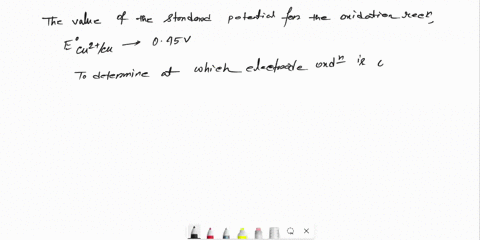 The value of the standard potential for the oxidation reacn,
E°cu²⁺/cu → 0.95 V
To determine at which electrode oxdn is c